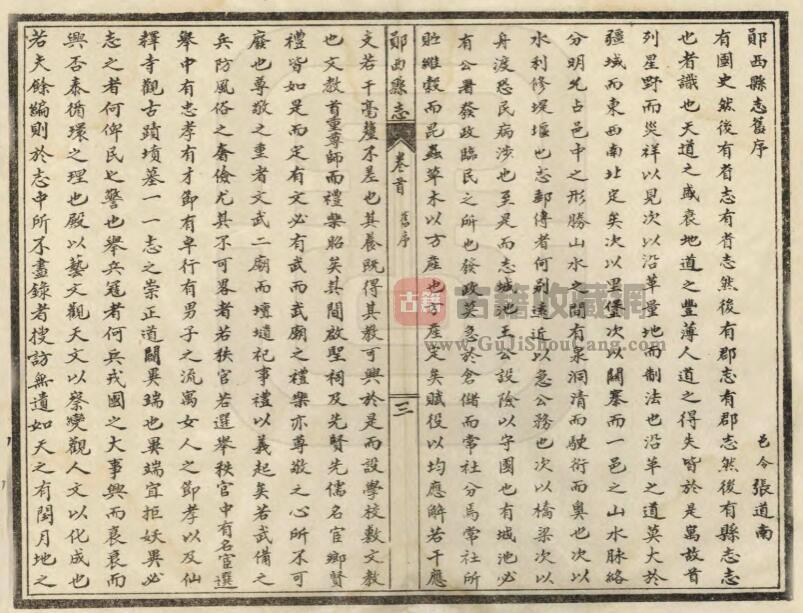 鄖西縣志舊序
邑令張道南
有國史然後有省志有省志然後有郡志有郡志然後有縣志志
也者識也天道之盛衰地道之豐薄人道之得失皆於是寓故首
列星野而災祥以見次以沿革量地而制法也沿革之道莫大於
疆域而東西南北定矣次以里堡次以關寨而一邑之山水脉絡
分明先占邑中之形勝山水之間有泉洞清而駛衍而奥也次以
水利修堤堰也志郵傳者何别遠近以急公務也次以橋梁次以
舟渡恐民病涉也至是而志城池王公設險以守國也有城池必
有公署發政臨民之所也發政莫急於倉儲而常社分焉常社所
貯維穀而昆蟲草木以方産也方産定矣賦役以均應解若干應
鄖西縣志
卷首
舊序
三
支若干毫釐不差也其養既得其教可興於是而設學校敷文教
也文教首重尊師而禮樂昭矣其間啟聖祠及先賢先儒名宦鄉賢
禮皆如是而定有文必有武而武廟之禮樂亦尊敬之心所不可
廢也尊敬之重者文武二廟而壇壝祀事禮以義起矣若武備之
兵防風俗之奢儉尤其不可畧者若秩官若選舉秩官中有名宦選
舉中有忠孝有才節有卓行有男子之流寓女人之節孝以及仙
釋寺觀古蹟墳墓一一志之崇正道闢異端也異端宜拒妖異必
志之者何俾民也警也舉兵冦者何兵戎國之大事興而衰衰而
興否泰循環之理也殿以藝文觀天文以察變觀人文以化成也
若夫餘編則於志中所不盡錄者搜訪無遺如天之有閏月地之
古籍
古籍收藏網
www.GuJiShouCang.com